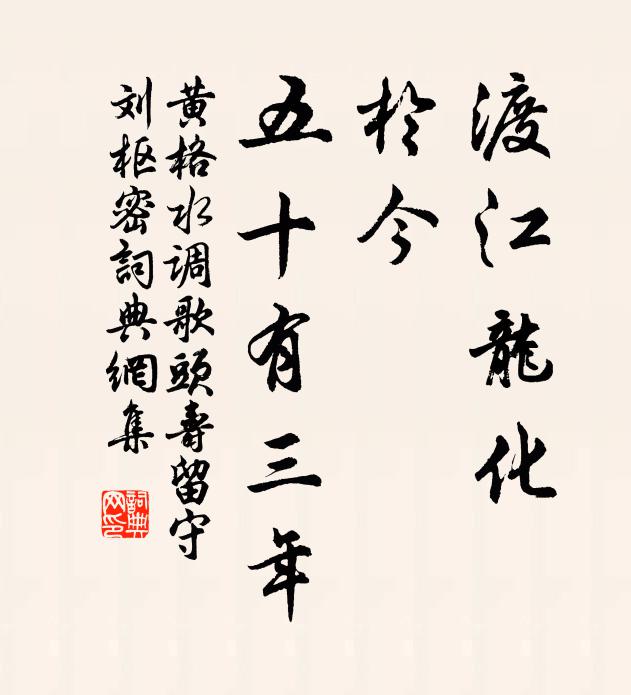 渡江龍化
於今
五十有三年
黄格水调歌頭壽留守
刘枢密詞典網集
詞典
网印